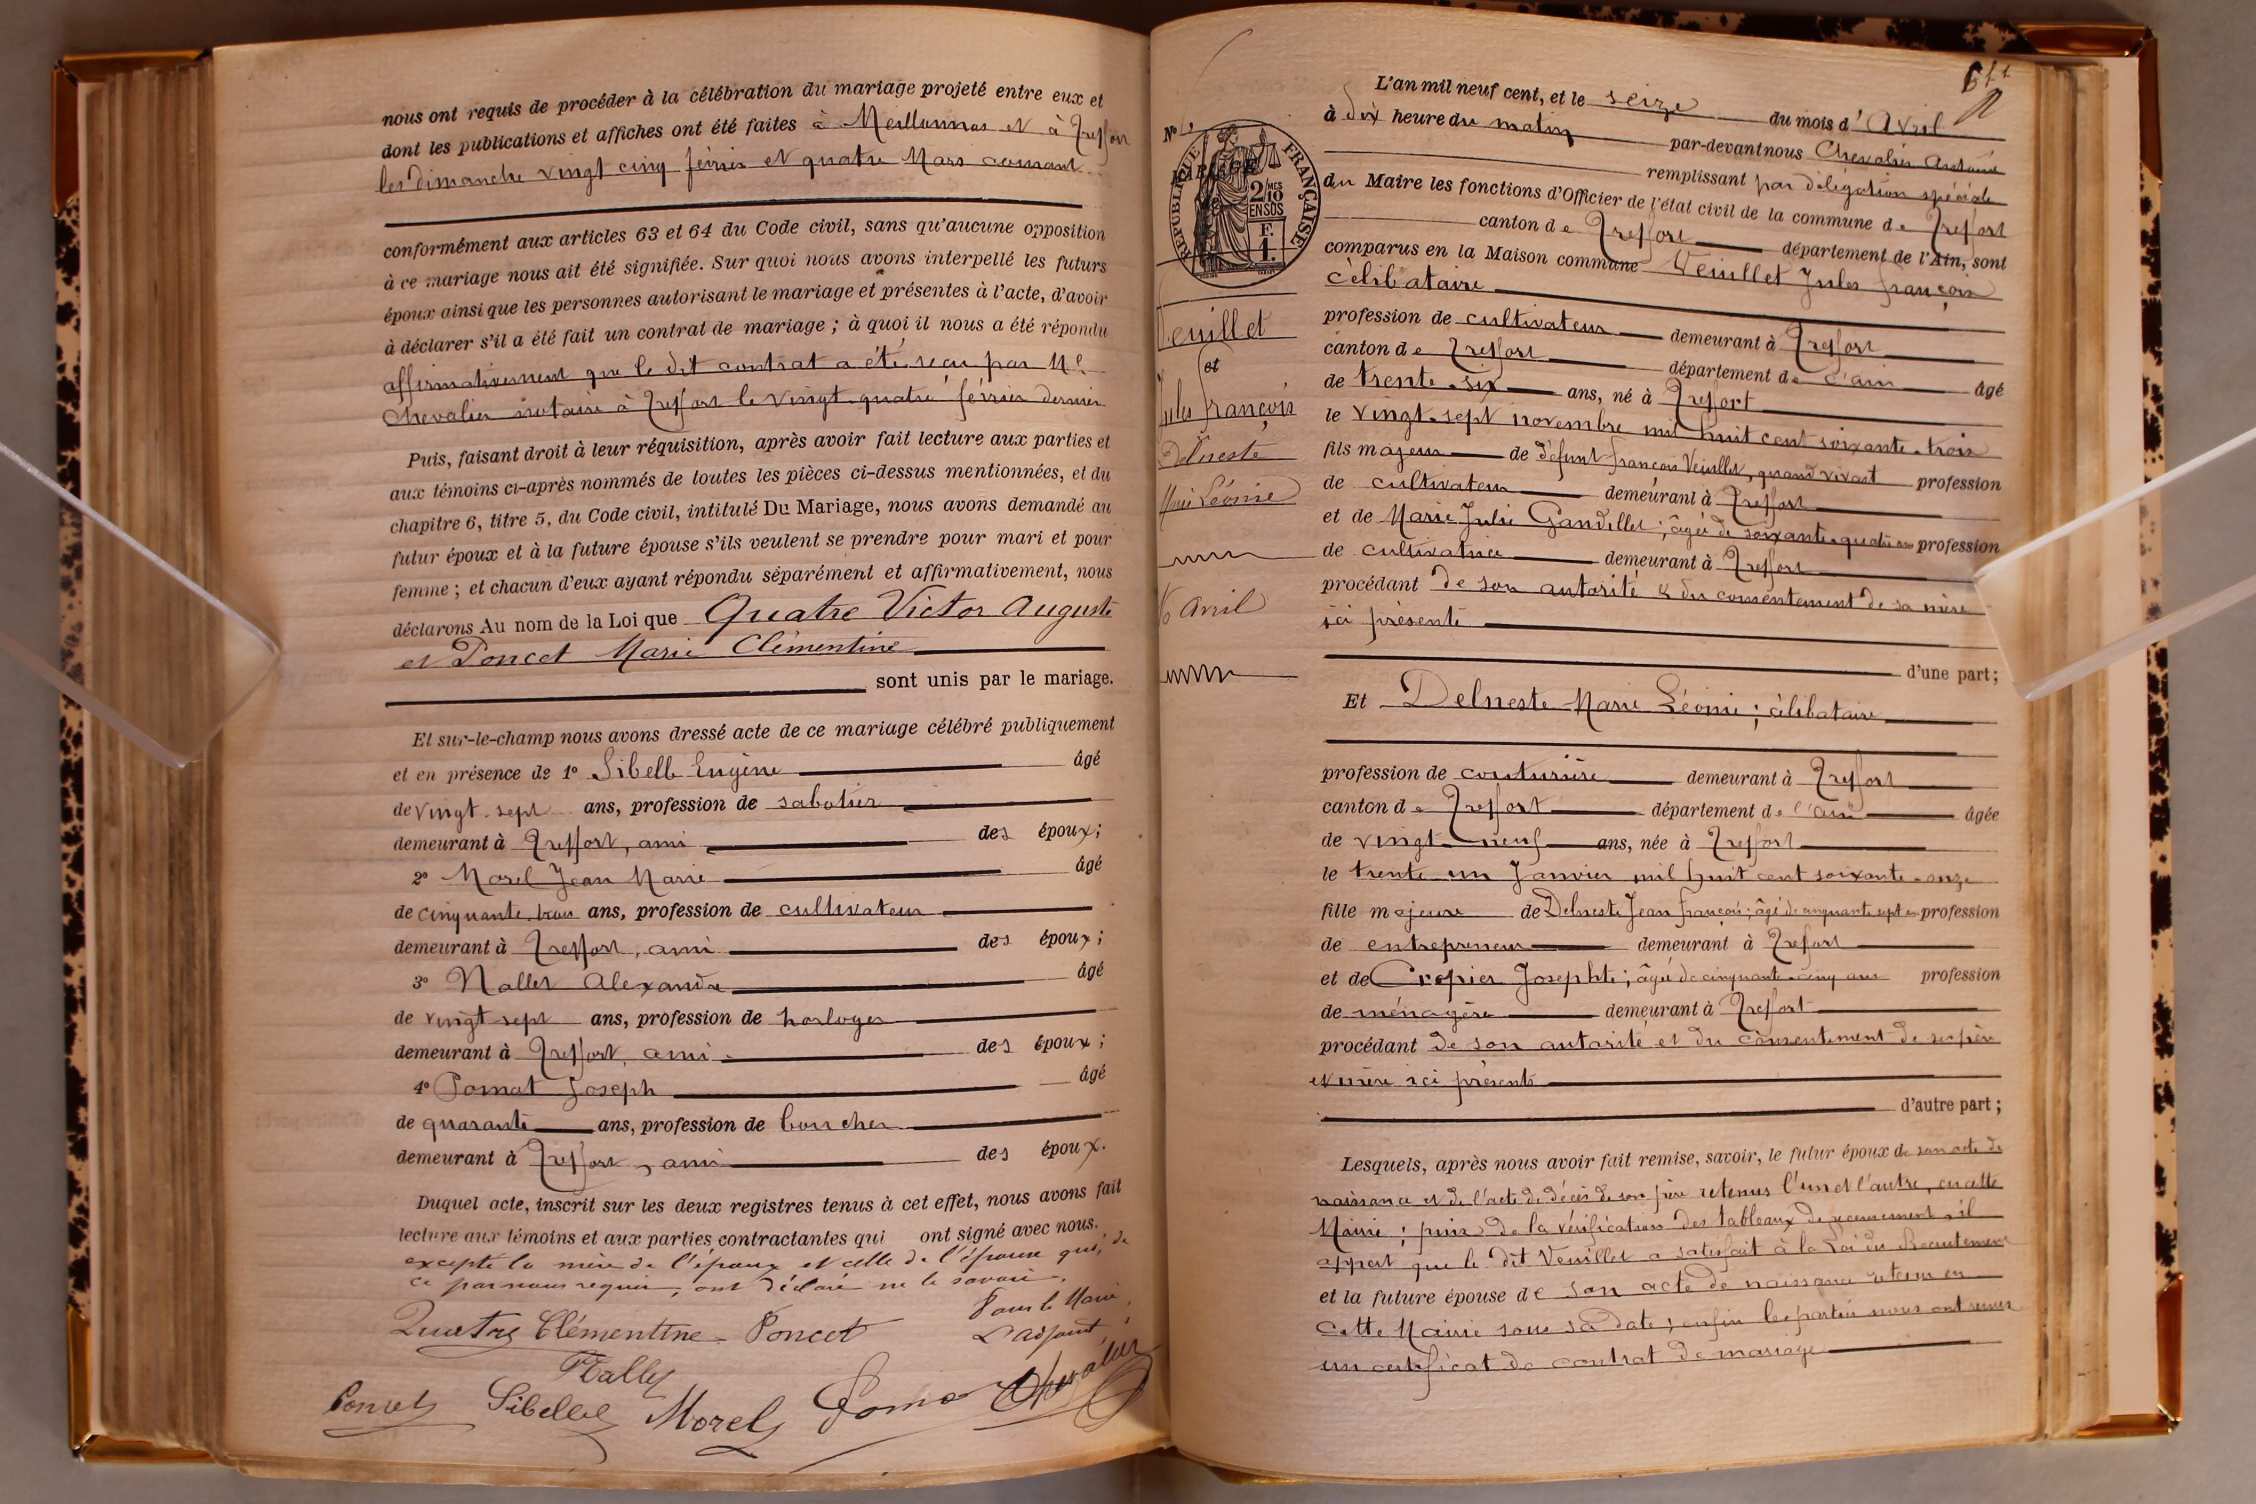 nous ont requis de procéder à la célébration du mariage projeté entre eux et
dont les publications et affiches ont été faites à Meillonnas et à Treffort
les dimanche vingt cinq février et quatre Mars courant
conformément aux articles 63 et 64 du Code civil, sans qu'aucune opposition
à ce mariage nous ait été signifiée. Sur quoi nous avons interpellé les futurs
époux ainsi que les personnes autorisant le mariage et présentes à l'acte, d'avoir
à déclarer s'il a été fait un contrat de mariage ; à quoi il nous a été répondu
affirmativement que le dit contrat a été reçu par Me
Chevalier notaire à Treffort le vingt quatre février dernier
Puis, faisant droit à leur réquisition, après avoir fait lecture aux parties et
aux témoins ci-après nommés de toutes les pièces ci-dessus mentionnées, et du
chapitre 6, titre 5, du Code civil, intitulé Du Mariage, nous avons demandé au
futur époux et à la future épouse s'ils veulent se prendre pour mari et pour
femme ; et chacun d'eux ayant répondu séparément et affirmativement, nous
déclarons Au nom de la Loi que Quatre Victor Auguste
et Poncet Marie Clémentine
sont unis par le mariage.
Et sur-le-champ nous avons dressé acte de ce mariage célébré publiquement
et en présence de 1° Sibelle Eugène âgé
de vingt sept ans, profession de sabotier
demeurant à Treffort, ami des époux ;
2° Morel Jean Marie âgé
de cinquante trois ans, profession de cultivateur
demeurant à Treffort, ami des époux ;
3° Nallet Alexandre âgé
de vingt sept ans, profession de horloger
demeurant à Treffort, ami des époux ;
4° Pomat Joseph âgé
de quarante ans, profession de boucher
demeurant à Treffort, ami des époux.
Duquel acte, inscrit sur les deux registres tenus à cet effet, nous avons fait
lecture aux témoins et aux parties contractantes qui ont signé avec nous.
excepté la mère de l'époux et celle de l'épouse qui, de
ce par nous requis, ont déclaré ne le savoir.
Pour le Maire,
L'adjoint,
Quatre Clémentine Poncet
Nallet
Poncet Sibelle Morel Poma Chevalier
No
RÉPUBLIQUE FRANÇAISE
MARIAGE
2/10 MES
EN SUS
1 F.
Veuillet
et
Jules François
Delneste
Marie Léonie
16 Avril
L'an mil neuf cent, et le seize du mois d'Avril
à dix heure du matin par-devant nous Chevalier Antoine
remplissant par délégation spéciale
du Maire les fonctions d'Officier de l'état civil de la commune de Treffort
canton de Treffort département de l'Ain, sont
comparus en la Maison commune Veuillet Jules François
célibataire
profession de cultivateur demeurant à Treffort
canton de Treffort département de l'ain âgé
de trente-six ans, né à Treffort
le vingt-sept novembre mil huit cent soixante-trois
fils majeur de défunt François Veuillet, quand vivait profession
de cultivateur demeurant à Treffort
et de Marie Julie Gandillet ; âgée de soixante-quatre ans profession
de cultivatrice demeurant à Treffort
procédant de son autorité & du consentement de sa mère
ici présente
d'une part ;
Et Delneste Marie Léonie ; célibataire
profession de couturière demeurant à Treffort
canton de Treffort département de l'ain âgée
de vingt-neuf ans, née à Treffort
le trente un Janvier mil huit cent soixante-onze
fille majeure de Delneste Jean François ; âgé de cinquante sept ans profession
de entrepreneur demeurant à Treffort
et de Crepier Josephte ; âgée de cinquante-cinq ans profession
de ménagère demeurant à Treffort
procédant de son autorité et du consentement de ses père
et mère ici présents
d'autre part ;
Lesquels, après nous avoir fait remise, savoir, le futur époux de son acte de
naissance et de l'acte de décès de son père retenus l'un et l'autre, en cette
Mairie ; puis de la vérification des tableaux de recensement, il
appert que le dit Veuillet a satisfait à la Loi du Recrutement
et la future épouse de son acte de naissance retenu en
cette Mairie sous sa date ; enfin les parties nous ont remis
un certificat de contrat de mariage